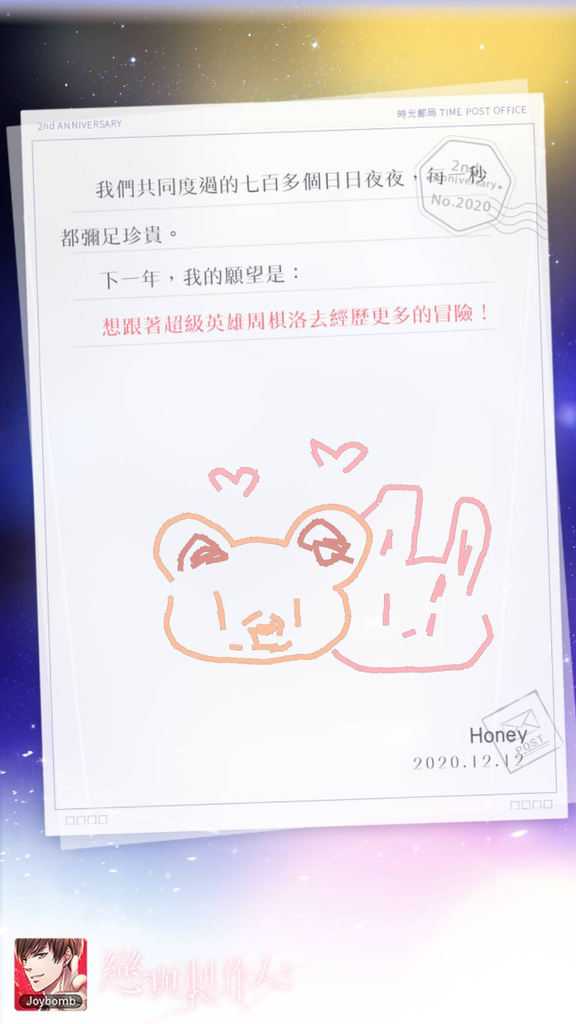 2nd ANNIVERSARY
時光郵局 TIME POST OFFICE
2nd
Anniversary
No.2020
我們共同度過的七百多個日日夜夜，每 秒
都彌足珍貴。
下一年，我的願望是：
想跟著超級英雄周棋洛去經歷更多的冒險！
Honey
POST
2020.12.12
□□□□
□□□□
Joybomb
戀與製作人